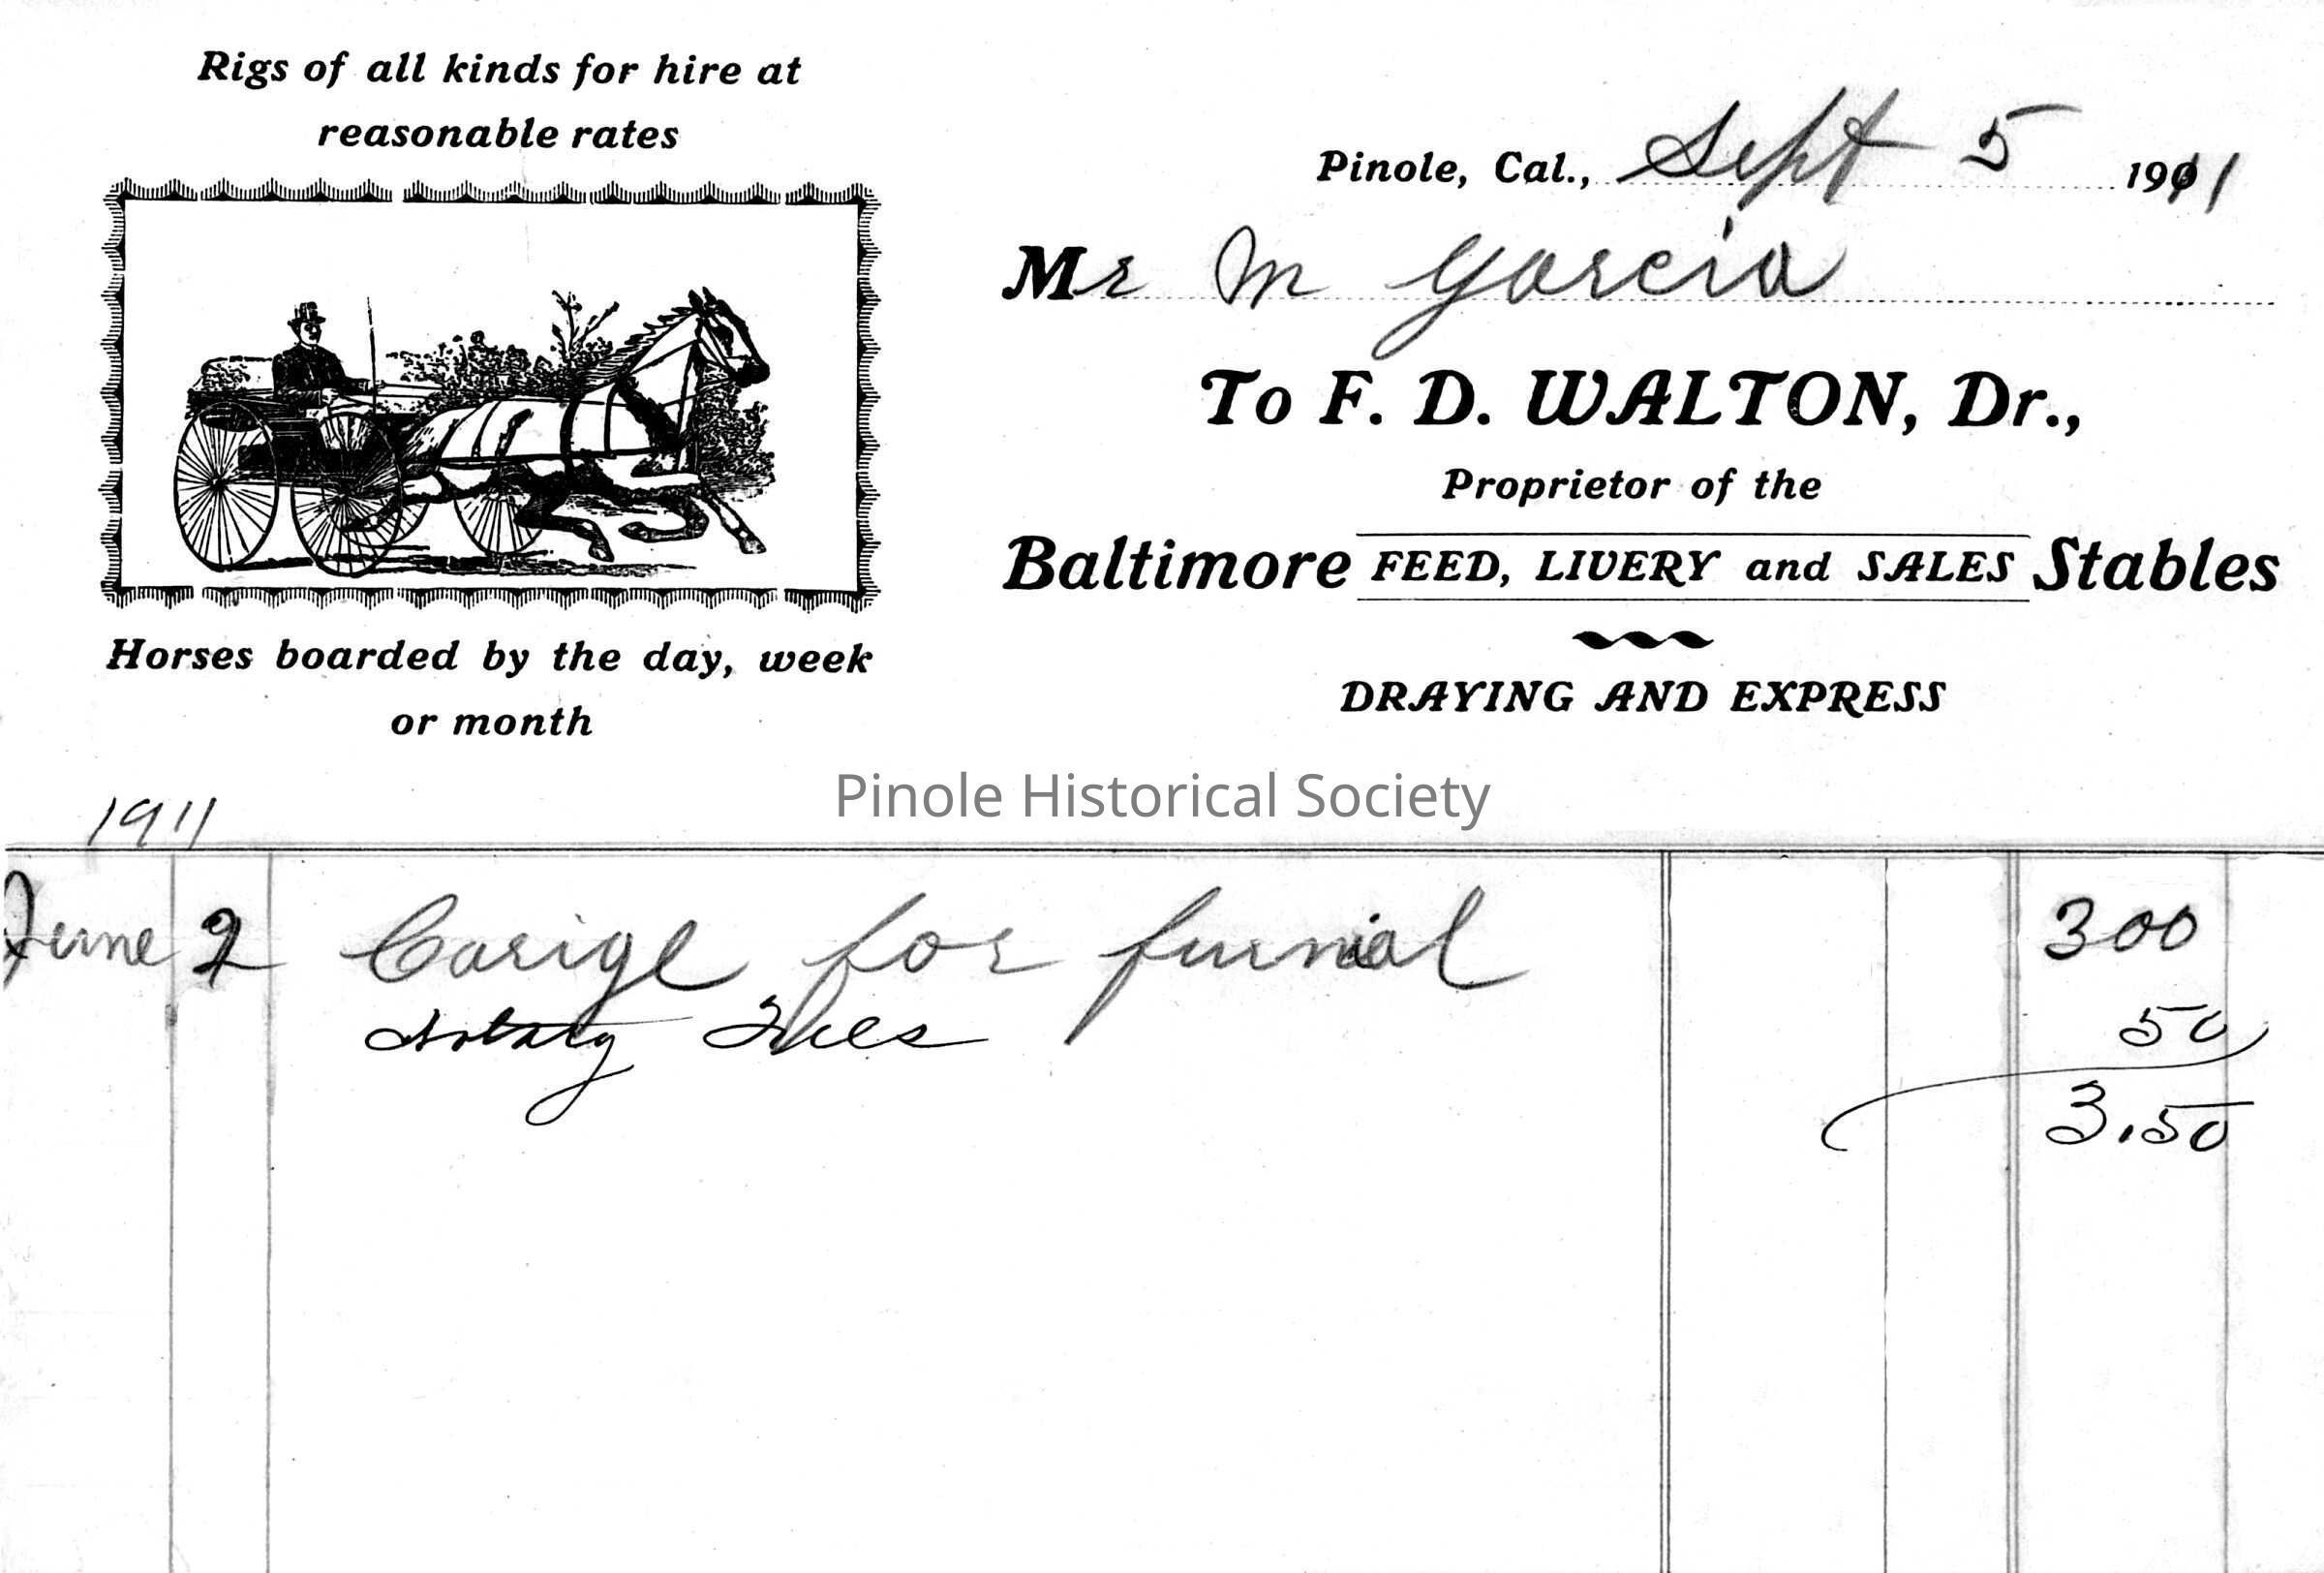 Rigs of all kinds for hire at
reasonable rates
Horses boarded by the day, week
or month
Pinole, Cal., Sept 5 1911
Mr M Garcia
To F. D. WALTON, Dr.,
Proprietor of the
Baltimore FEED, LIVERY and SALES Stables
DRAYING AND EXPRESS
Pinole Historical Society
1911
June 2 Carige for furnial 300
Notary Fees 50
3.50